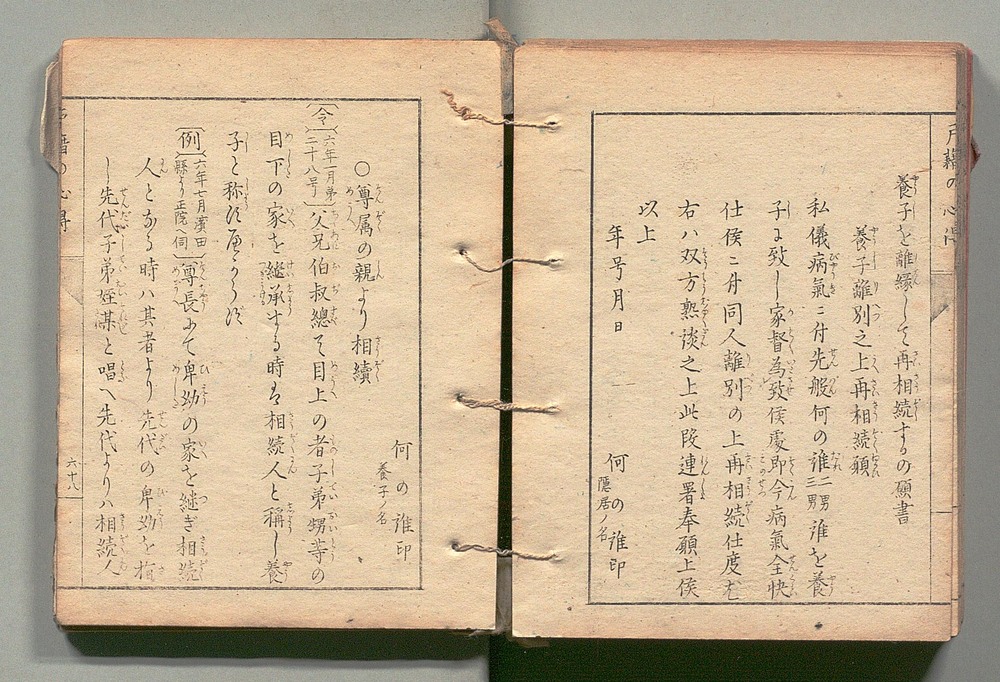 養子を離縁して再相続するの願書
養子離別之上再相続願
私儀病氣ニ付先般何の誰二男三男誰を養
子に致し家督為致候處即今病氣全快
仕候ニ付同人離別の上再相続仕度尤
右ハ双方熟談之上此段連署奉願上候
以上
年号月日
何の誰印
隠居ノ名
戸籍の心得
何の誰印
養子ノ名
○尊属の親より相續
〔令〕六年一月第二十八号〕父兄伯叔總て目上の者子弟甥等の
目下の家を継承する時は相続人と稱し養
子と称すべからず
〔例〕六年七月濱田縣より正院へ伺〕尊長にて卑幼の家を継ぎ相続
人となる時ハ其者より先代の卑幼を指
し先代子弟姪某と唱へ先代よりハ相続人
戸籍の心得
六十八